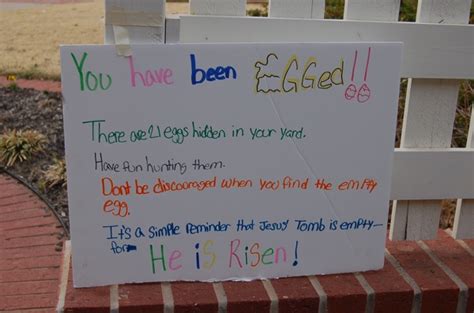 You have been EGGed!!
There are 21 eggs hidden in your yard.
Have fun hunting them.
Dont be discouraged when you find the empty
egg.
It's a simple reminder that Jesus' Tomb is empty—
for
He is Risen!